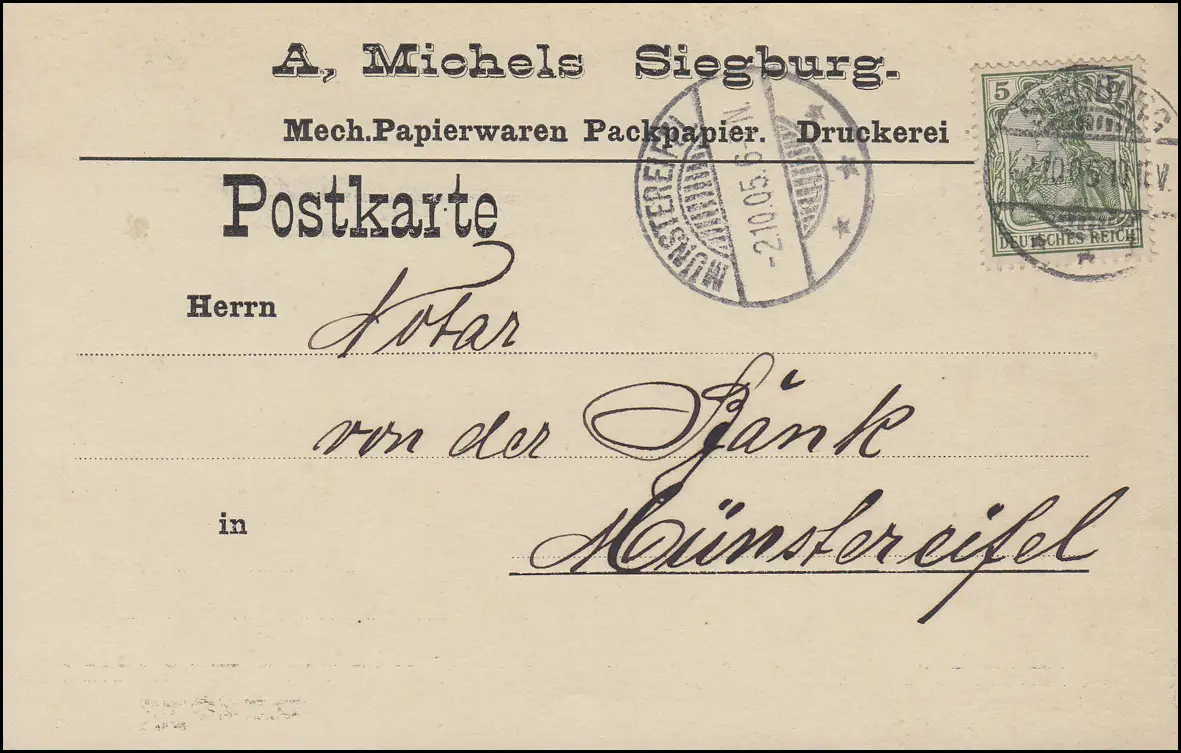 A, Michels Siegburg.
Mech.Papierwaren Packpapier. Druckerei
5
MÜNSTEREIFEL
-2.10.05.6-7N.
DEUTSCHES REICH
Postkarte
Herrn Notar
von der Bank
in Münstereifel